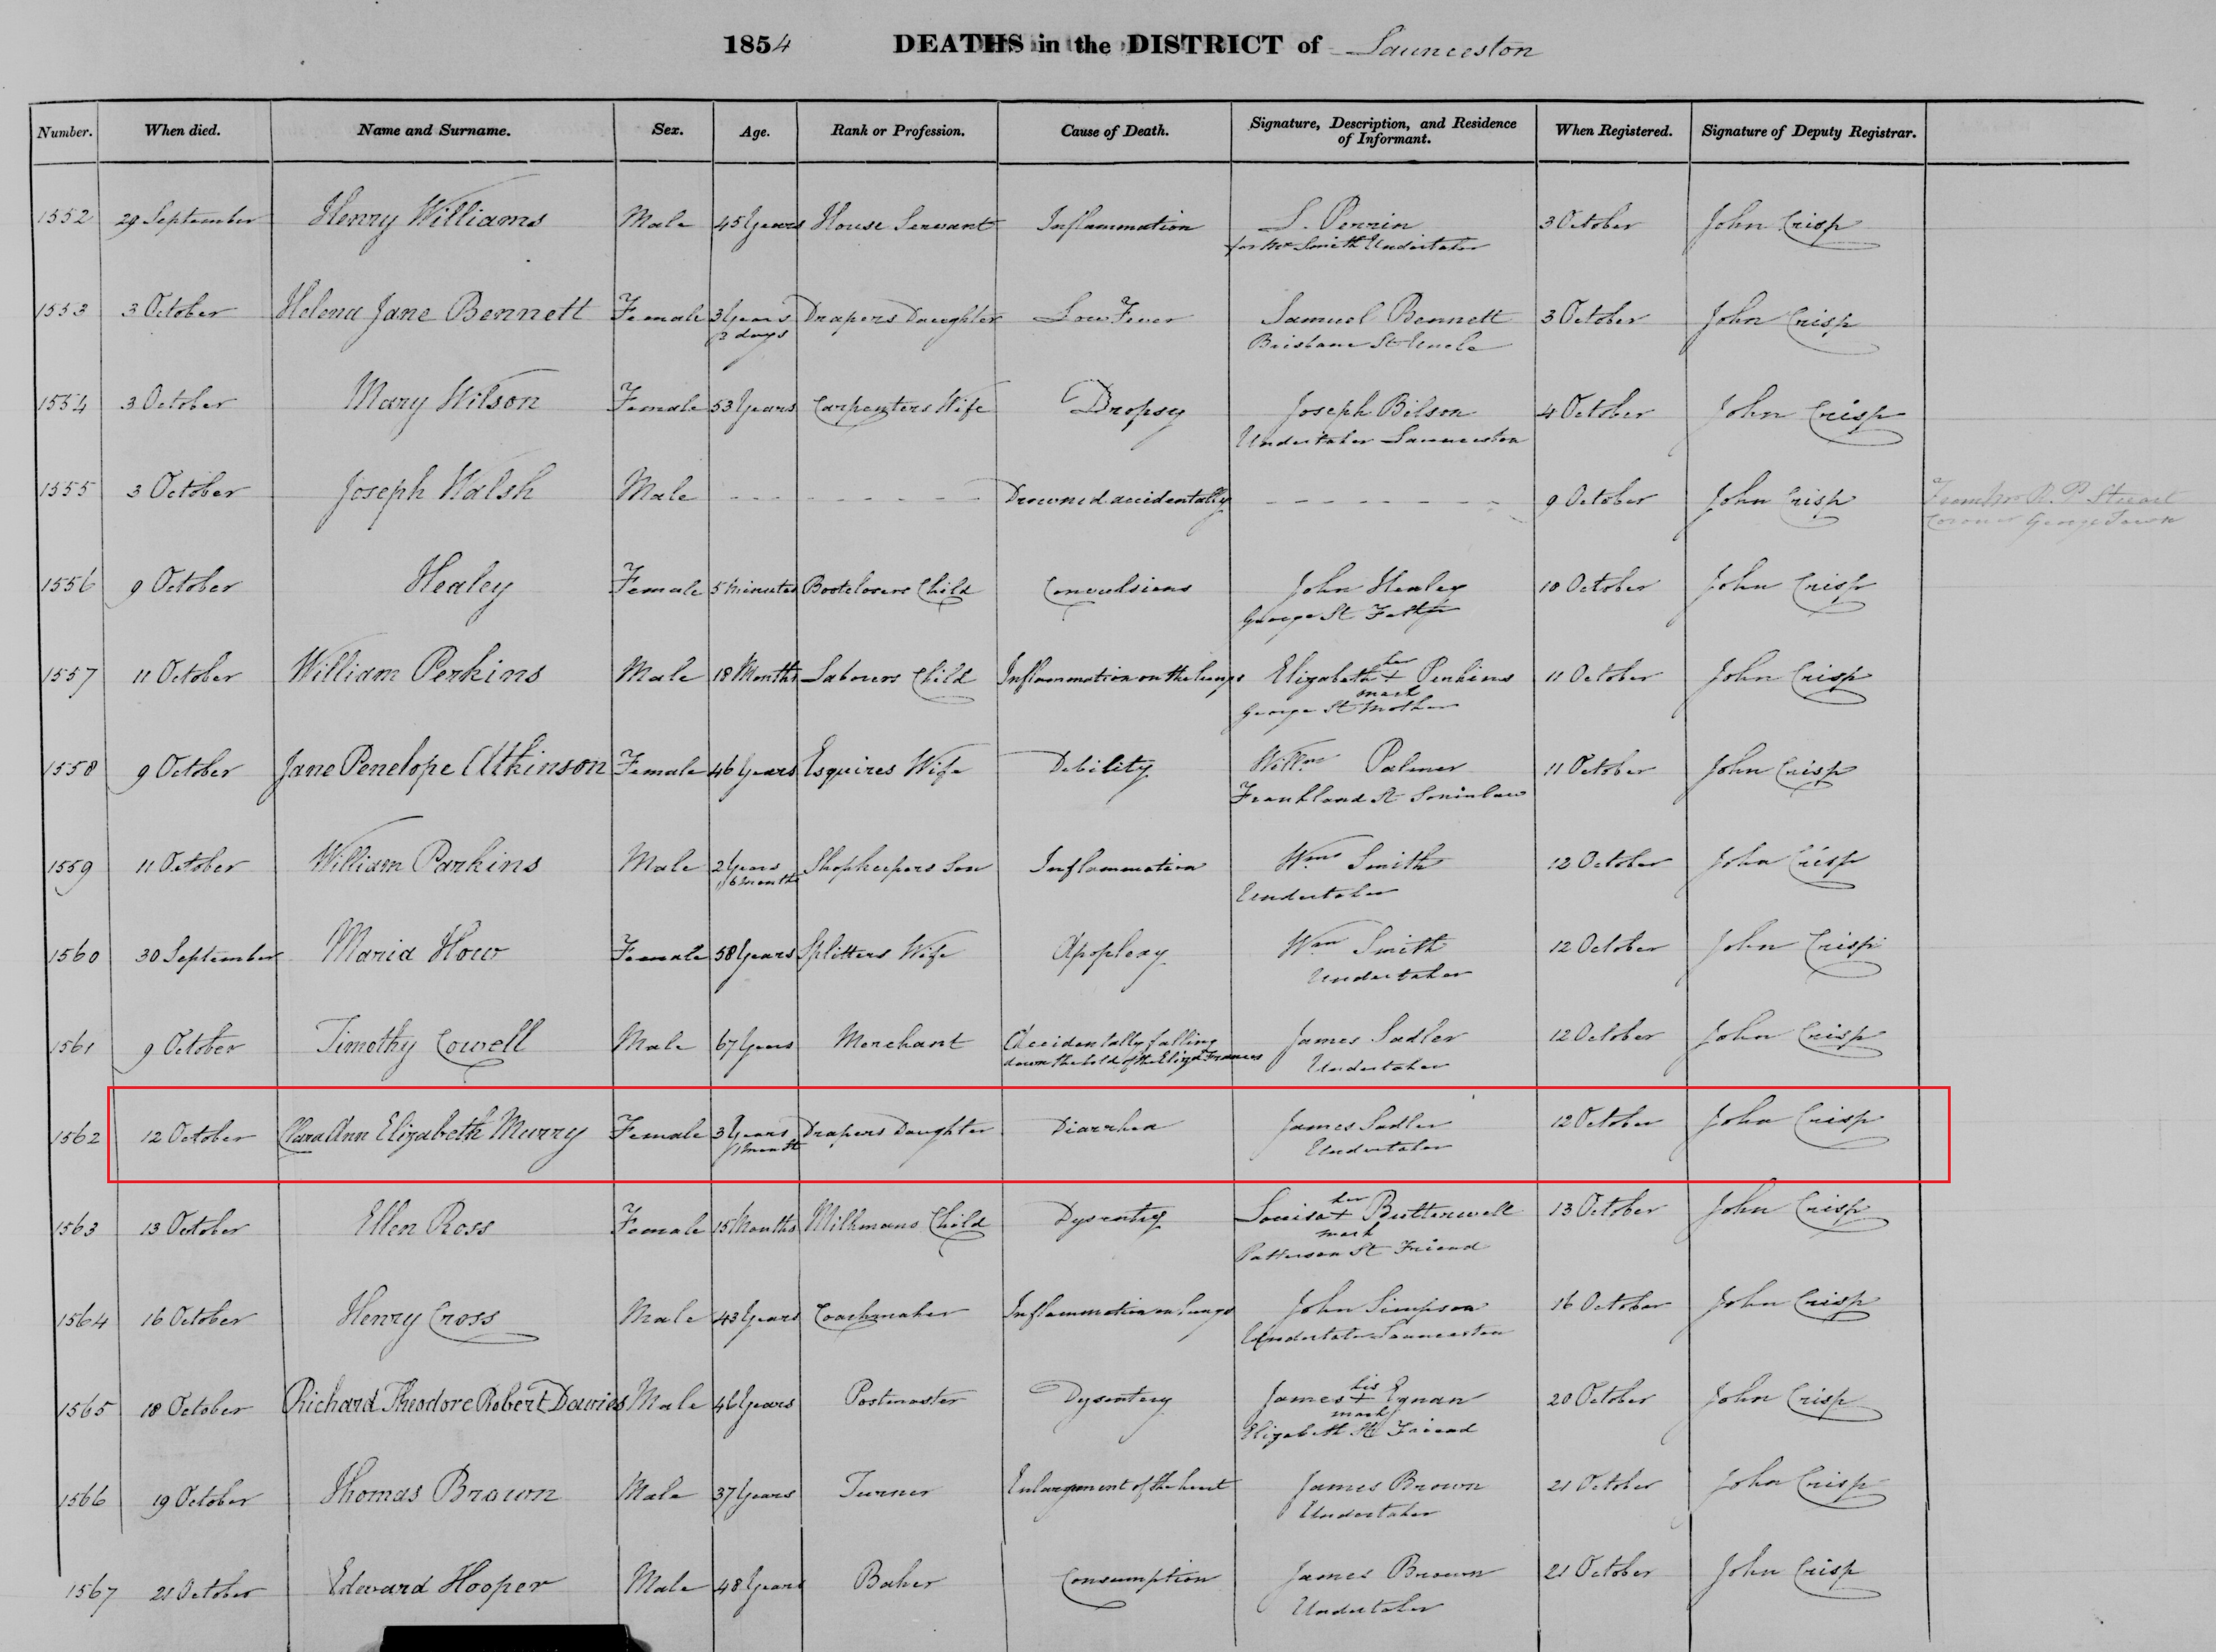 1854 DEATHS in the DISTRICT of Launceston
Number. When died. Name and Surname. Sex. Age. Rank or Profession. Cause of Death. Signature, Description, and Residence of Informant. When Registered. Signature of Deputy Registrar.
1552 29 September Henry Williams Male 45 Years House Servant Inflammation S. Perrin 3 October John Crisp
for Mr Smith Undertaker
1553 3 October Helena Jane Bennett Female 3 Years Drapers Daughter Low Fever Samuel Bennett 3 October John Crisp
2 days Brisbane St Uncle
1554 3 October Mary Wilson Female 53 Years Carpenters Wife Dropsy Joseph Bilson 4 October John Crisp
Undertaker Launceston
1555 3 October Joseph Walsh Male Drowned accidentally 9 October John Crisp From Mr R. P. Stuart
Coroner George Town
1556 9 October Healey Female 5 Minutes Bootclosers Child Convulsions John Healey 10 October John Crisp
George St Father
1557 11 October William Perkins Male 18 Months Labourers Child Inflammation on the lungs Elizabeth her + Perkins 11 October John Crisp
mark
George St Mother
1558 9 October Jane Penelope Atkinson Female 46 Years Esquires Wife Debility Willm Palmer 11 October John Crisp
Frankland St Soninlaw
1559 11 October William Parkins Male 2 Years Shopkeepers Son Inflammation Wm Smith 12 October John Crisp
6 months Undertaker
1560 30 September Maria How Female 58 Years Splitters Wife Apoplexy Wm Smith 12 October John Crisp
Undertaker
1561 9 October Timothy Cowell Male 67 Years Merchant Accidentally falling James Sadler 12 October John Crisp
down the hold of the Elizth Frances Undertaker
1562 12 October Clara Ann Elizabeth Murry Female 3 Years Drapers Daughter Diarrhea James Sadler 12 October John Crisp
1 month Undertaker
1563 13 October Ellen Ross Female 15 Months Milkmans Child Dysentry Louisa her + Butterwell 13 October John Crisp
mark
Patterson St Friend
1564 16 October Henry Cross Male 43 Years Coachmaker Inflammation on lungs John Simpson 16 October John Crisp
Undertaker Launceston
1565 18 October Richard Theodore Robert Davies Male 46 Years Postmaster Dysentery James his + Eynan 20 October John Crisp
mark
Elizabeth St Friend
1566 19 October Thomas Brown Male 37 Years Turner Enlargement of the heart James Brown 21 October John Crisp
Undertaker
1567 21 October Edward Hooper Male 48 Years Baker Consumption James Brown 21 October John Crisp
Undertaker